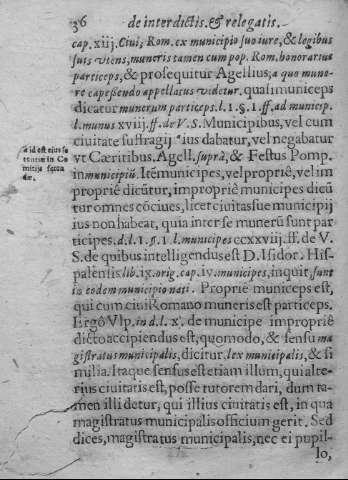 36 de interdictis. & relegatis.
cap. xiij. Ciui, Rom. ex municipio suo iure, & legibus
suis vtens, muneris tamen cum pop. Rom. honorarius
particeps, & prosequitur Agellius; a quo mune-
re capessendo appellatus videtur. quasi municeps
dicatur munerum particeps. l. 1. §. 1. ff. ad municip.
l. munus xviij. ff. de V. S. Municipibus, vel cum
ciuitate suffragij a ius dabatur, vel negabatur
vt Cæritibus. Agell. suprà, & Festus Pomp.
a id est eius fa
cultas in Co
mitijs feren
dæ.
in municipiũ. Itẽ municipes, vel propriè, vel im
propriè dicũtur, impropriè municipes dicũ
tur omnes cõciues, licet ciuitas sue municipij
ius non habeat, quia inter se munerũ sunt par
ticipes. d. l. 1. §. 1 l. municipes ccxxviij. ff. de V.
S. de quibus intelligendus est D. Isidor. His-
palensis lib. ix. orig. cap. iv. municipes, inquit, sunt
in eodem municipio nati. Propriè municeps est,
qui cum ciui Romano muneris est particeps.
Ergò Vlp. in d. l. x. de municipe impropriè
dicto accipiendus est, quomodo, & sensu ma
gistratus municipalis, dicitur. lex municipalis, & si
milia. Itaque sensus est etiam illum, qui alte-
rius ciuitatis est, posse tutorem dari, dum ta-
men illi detur, qui illius ciuitatis est, in qua
magistratus municipalis officium gerit. Sed
dices, magistratus municipalis, nec ei pupil-
lo,